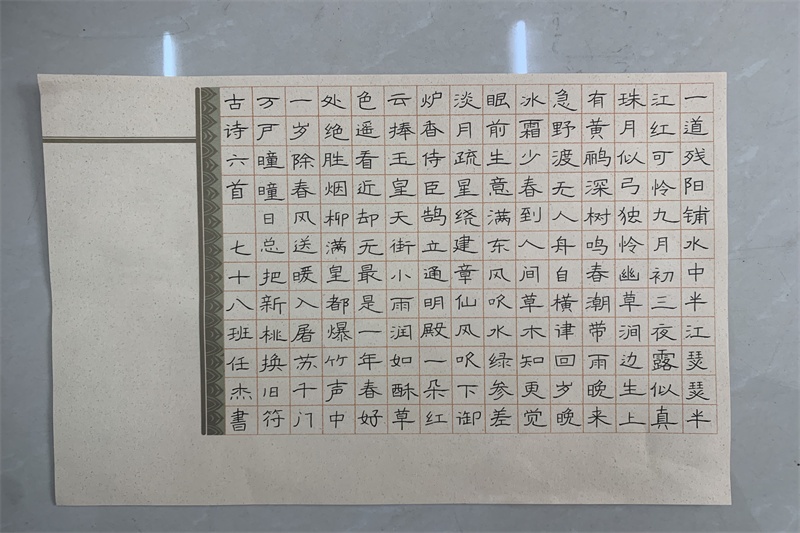 一道残阳铺水中半江瑟瑟半
江红可怜九月初三夜露似真
珠月似弓独怜幽草涧边生上
有黄鹂深树鸣春潮带雨晚来
急野渡无人舟自横律回岁晚
冰霜少春到人间草木知更觉
眼前生意满东风吹水绿参差
淡月疏星绕建章仙风吹下御
炉香侍臣鹄立通明殿一朵红
云捧玉皇天街小雨润如酥草
色遥看近却无最是一年春好
处绝胜烟柳满皇都爆竹声中
一岁除春风送暖入屠苏千门
万户瞳瞳日总把新桃换旧符
古诗六首 七十八班任杰書